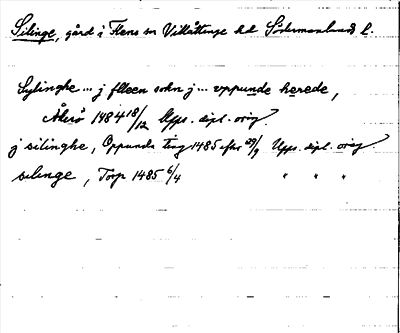 Silinge, gård i Flens sn Villåttinge hd Södermanlands l.
Sylinghe ... j fleen sokn j ... vppunde herede,
Åkerö 1484 18/12 Upps. dipl. orig.
j silinghe, Oppunda ting 1485 efter 29/9 Upps. dipl. orig
silinge, Torp 1485 6/4 " " "